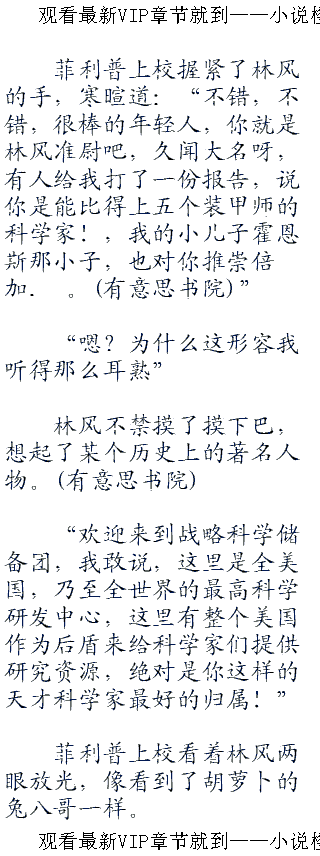 观看最新VIP章节就到——小说
菲利普上校握紧了林风
的手，寒暄道：“不错，不
错，很棒的年轻人，你就是
林风准尉吧，久闻大名呀，
有人给我打了一份报告，说
你是能比得上五个装甲师的
科学家！，我的小儿子霍恩
斯那小子，也对你推崇倍
加． 。（有意思书院）”
“嗯？为什么这形容我
听得那么耳熟”
林风不禁摸了摸下巴，
想起了某个历史上的著名人
物。（有意思书院）
“欢迎来到战略科学储
备团，我敢说，这里是全美
国，乃至全世界的最高科学
研发中心，这里有整个美国
作为后盾来给科学家们提供
研究资源，绝对是你这样的
天才科学家最好的归属！”
菲利普上校看着林风两
眼放光，像看到了胡萝卜的
兔八哥一样。
观看最新VIP章节就到——小说